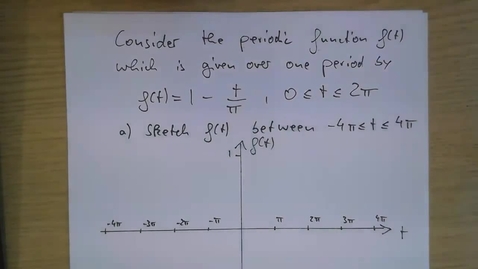 Consider the periodic function f(t)
which is given over one period by
f(t) = 1 - t/π , 0 ≤ t ≤ 2π
a) Sketch f(t) between -4π ≤ t ≤ 4π
1 f(t)
-4π -3π -2π -π π 2π 3π 4π
t